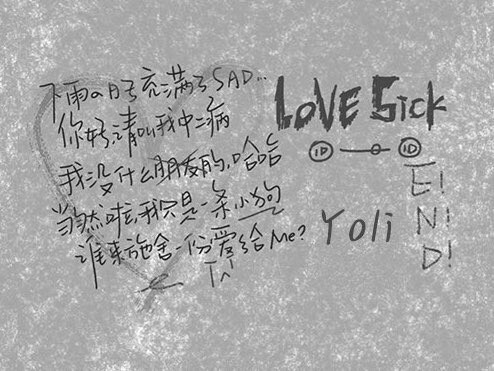 下雨の日子充满了SAD...
你好,请叫我中二病
我没什么朋友的,哈哈
当然啦,我只是一条小狗
谁来施舍一份爱给Me?
LOVE SICK
ID ID
Yoli
E!
N!
D!